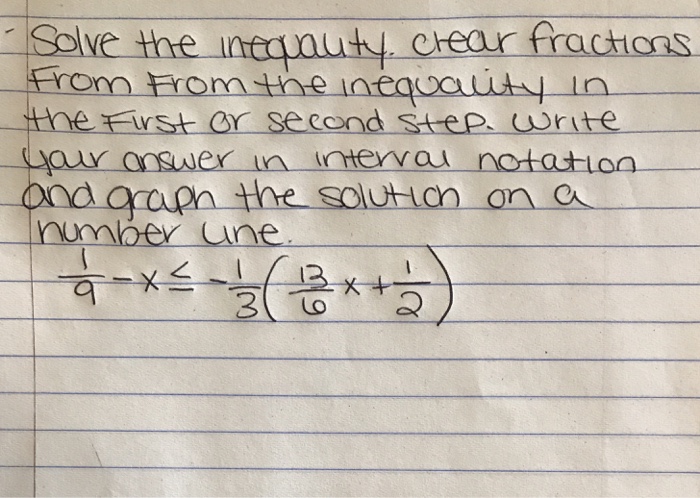 - Solve the inequauty. clear fractions
From From the inequality in
the First or second step. write
your answer in interval notation
and graph the solution on a
number line.
1/9 - x ≤ - 1/3 ( 13/6 x + 1/2 )